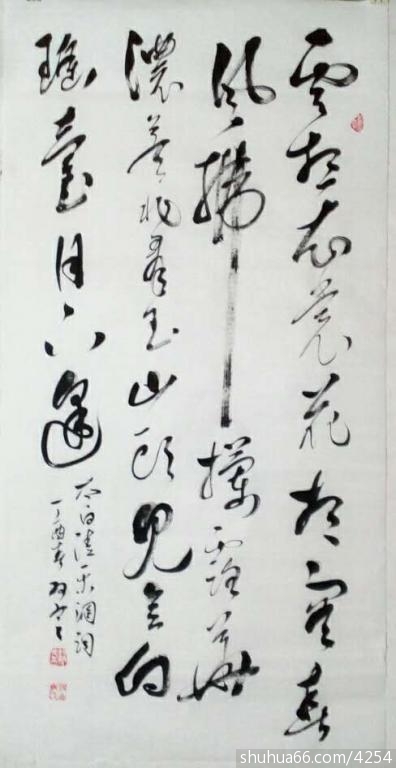 雲想衣裳花想容春
風拂檻露華
濃若非群玉山頭見會向
瑤臺月下逢
太白清平調詞
丁酉春
shuhua66.com/4254